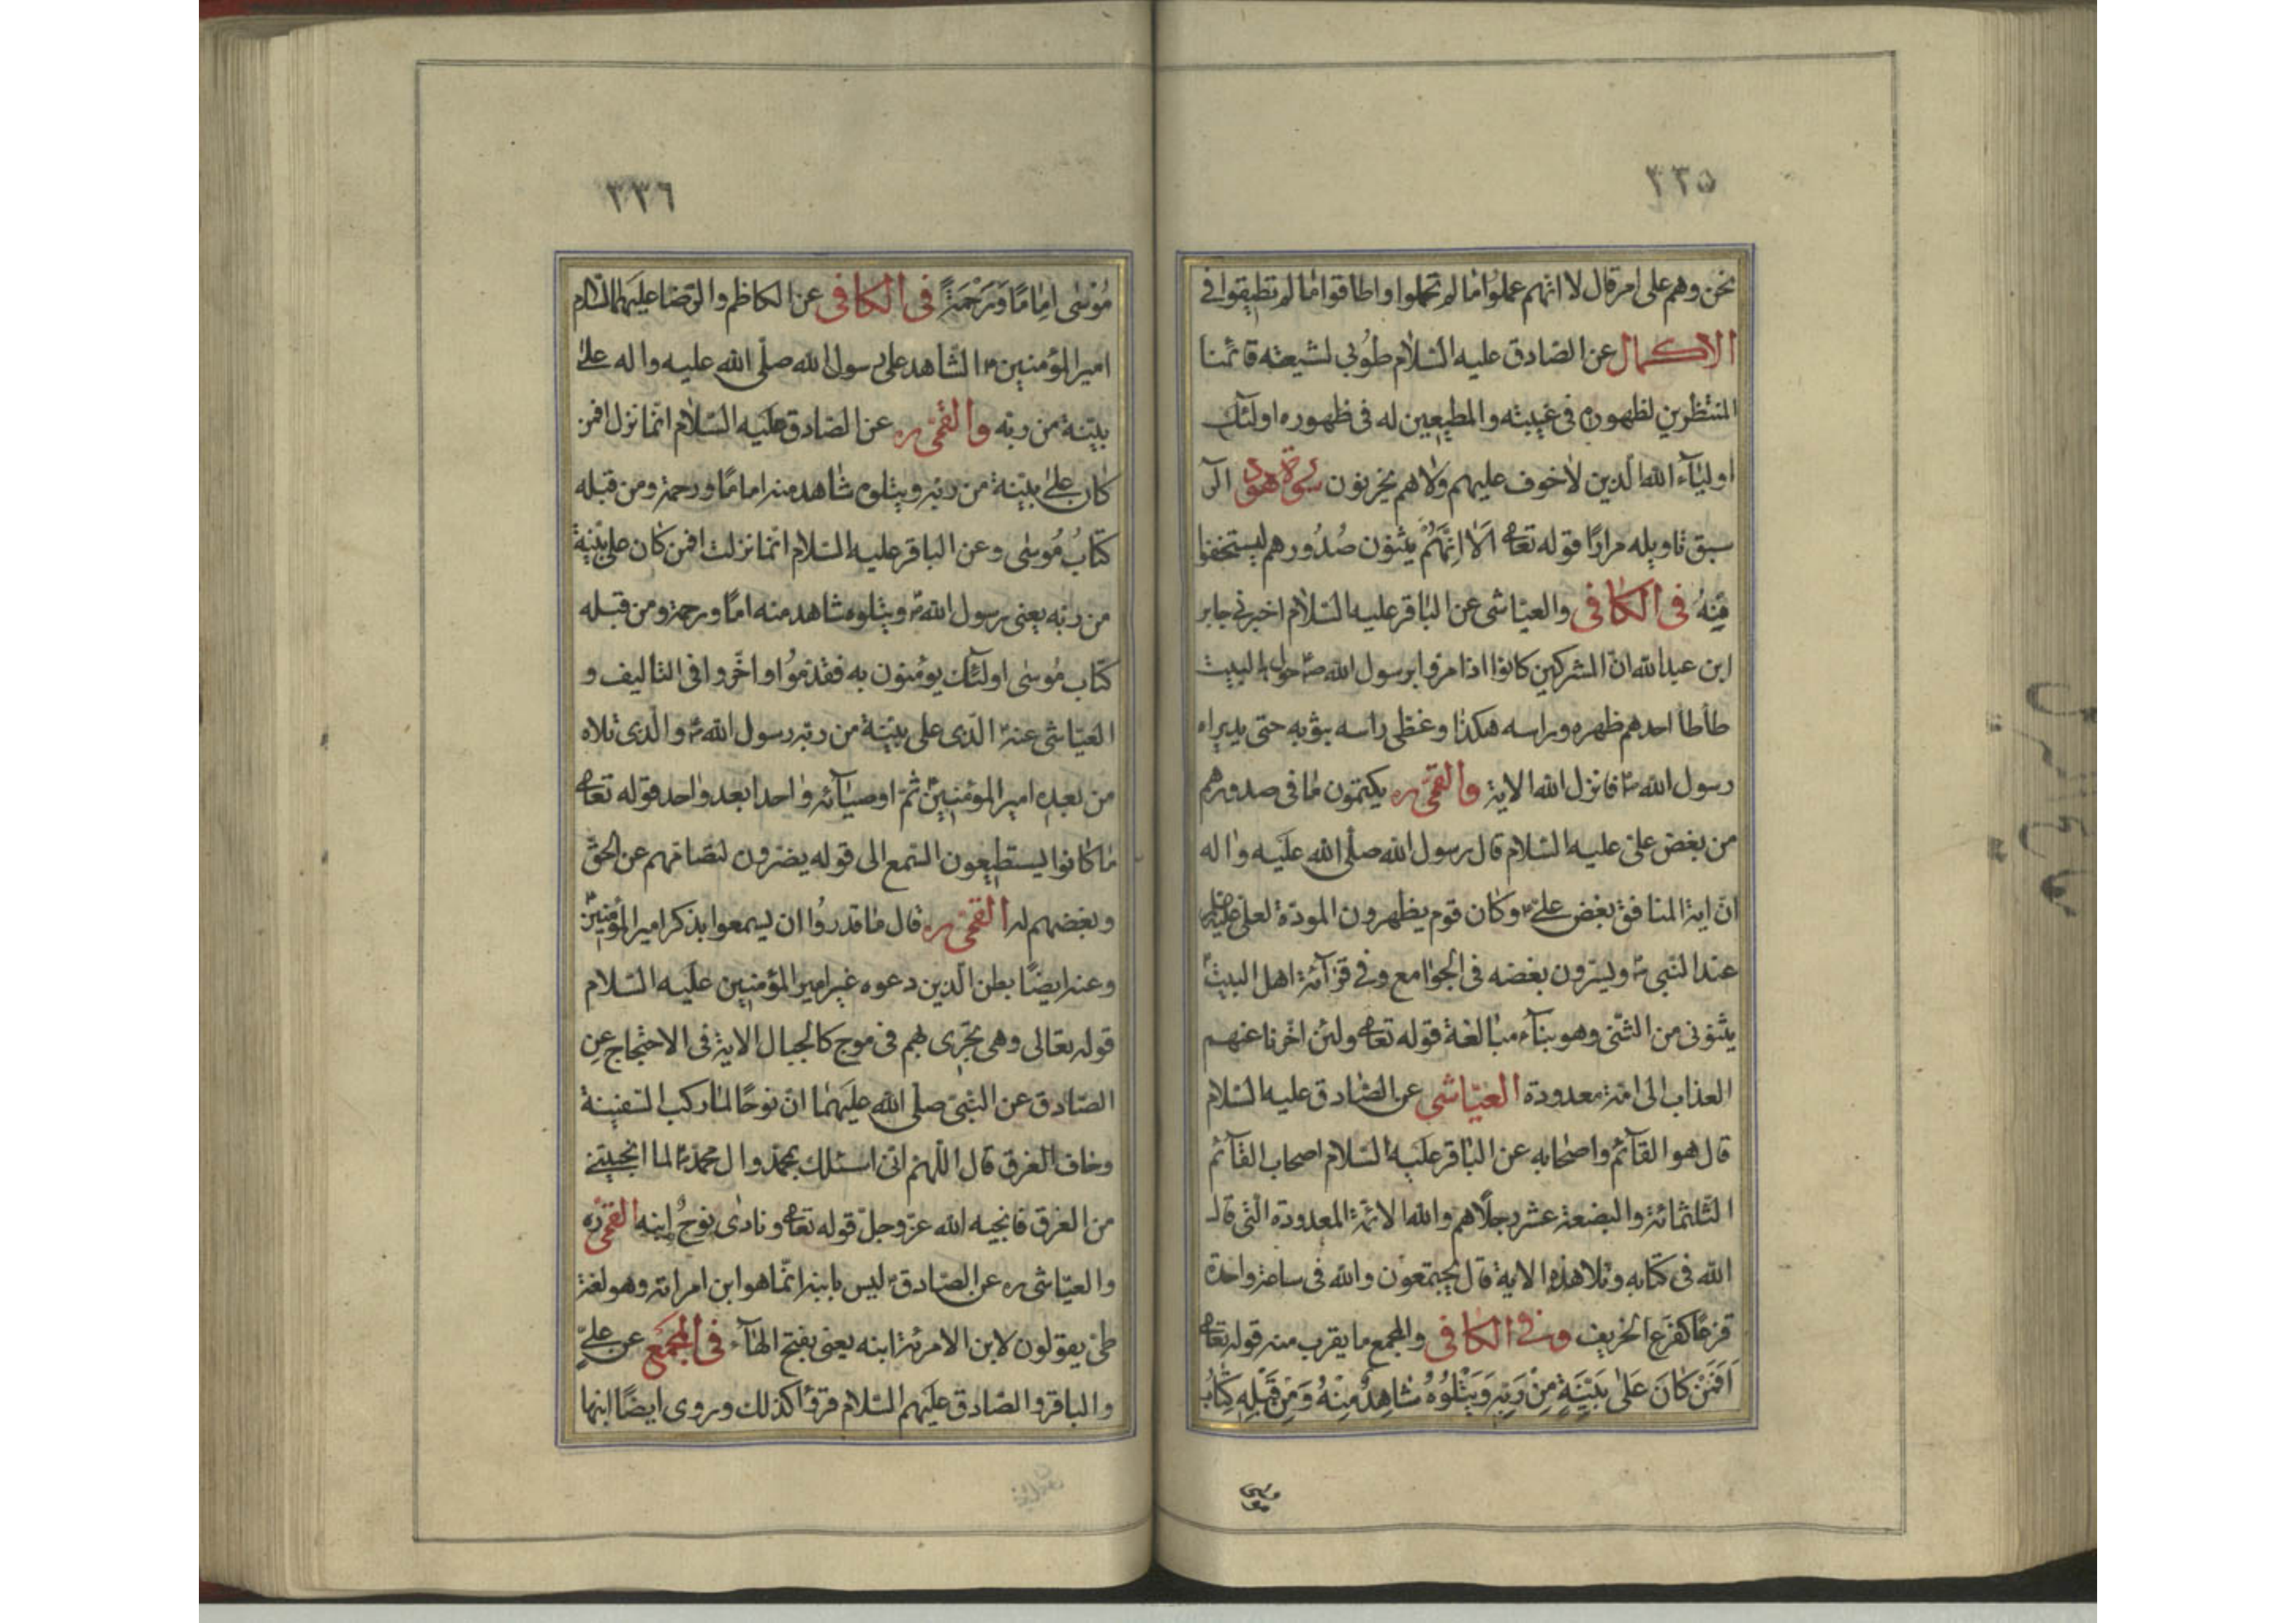 ٣٣٥
نحن وهم على امر قال لا انهم عملوا ما لم تحملوا واطاقوا ما لم تطيقوا فى
الاكمال عن الصادق عليه السلام طوبى لشيعته قائمنا
المنتظرين لظهوره فى غيبته والمطيعين له فى ظهوره اولئك
اولياء الله الذين لا خوف عليهم ولا هم يحزنون سورة هود الر
سبق تاويله مرارا قوله تعالى اَلا اِنَّهُمْ يثنون صُدُورهم ليستخفوا
مِنْهُ فى الكافى والعياشى عن الباقر عليه السلام اخبرنى جابر
ابن عبد الله ان المشركين كانوا اذا مروا برسول الله ص حول البيت
طأطأ احدهم ظهره وراسه هكذا وغطى راسه بثوبه حتى لا يراه
رسول الله ص فانزل الله الاية والقمى ره يكتمون ما فى صدورهم
من بغض على عليه السلام قال رسول الله صلى الله عليه واله
ان اية المنافق بغض على ع وكان قوم يظهرون المودة لعلى عليه السلم
عند النبى ص ويسرون بغضه فى الجوامع وفى قرآئة اهل البيت ع
يثنونى من الثنى وهو بنآء مبالغة قوله تعالى ولئن اخرنا عنهم
العذاب الى امة معدودة العياشى عن الصادق عليه السلام
قال هو القآئم واصحابه عن الباقر عليه السلام اصحاب القآئم
الثلثمائة والبضعة عشر رجلا هم والله الامة المعدودة التى قال
الله فى كتابه وتلا هذه الاية قال يجتمعون والله فى ساعة واحدة
قزعا كقزع الخريف وفى الكافى والمجمع ما يقرب منه قوله تعالى
اَفَمَنْ كَانَ عَلىٰ بَيِّنَةٍ مِنْ رَبِّهِ وَيَتْلُوهُ شَاهِدٌ مِنْهُ وَمِنْ قَبْلِهِ كِتَابُ
موسى
٣٣٦
مُوسٰى اِمَامًا وَرَحْمَةً فى الكافى عن الكاظم والرضا عليهما السلام
امير المؤمنين ع الشاهد على رسول الله صلى الله عليه واله على
بينة من ربه والقمى ره عن الصادق عليه السلام انما نزل افمن
كان على بينة من ربه ويتلوه شاهد منه اماما ورحمة ومن قبله
كتابُ مُوسى وعن الباقر عليه السلام انما نزلت افمن كان على بينة
من ربه يعنى رسول الله ص ويتلوه شاهد منه اماما ورحمة ومن قبله
كتاب موسى اولئك يؤمنون به فقدموا واخروا فى التاليف و
العياشى عنه ع الذى على بينة من ربه رسول الله ص والذى تلاه
من بعده امير المؤمنين ع ثم اوصيآئه واحدا بعد واحد قوله تعالى
ما كانوا يستطيعون السمع الى قوله يضرون لتصامهم عن الحق
وبغضهم له القمى ره قال ما قدروا ان يسمعوا بذكر امير المؤمنين ع
وعنه ايضا بطن الذين دعوه غير امير المؤمنين عليه السلام
قوله تعالى وهى تجرى بهم فى موج كالجبال الاية فى الاحتجاج عن
الصادق عن النبى صلى الله عليهما ان نوحا لما ركب السفينة
وخاف الغرق قال اللهم انى اسئلك بمحمد وال محمد ص لما انجيتنى
من الغرق فانجيه الله عز وجل قوله تعالى ونادى نوحٌ ابنه القمى ره
والعياشى ره عن الصادق ع ليس بابنه انما هو ابن امراته وهو لغة
طى يقولون لابن الامرئة ابنه يعنى بفتح الهاء فى المجمع عن على
والباقر والصادق عليهم السلام قرؤا كذلك وروى ايضا ابنها